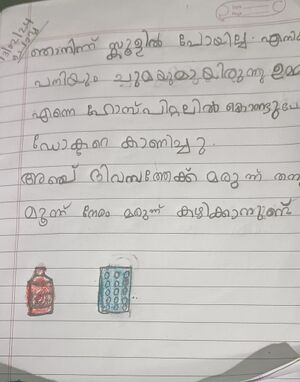 13/02/24
ഞാനിന്ന് സ്കൂളിൽ പോയില്ല. എനി
പനിയും ചുമയുമുായിരുന്നു
എന്നെ ഹോസ്പിറ്റലിൽ കൊണ്ടുപോ
ഡോക്ടറെ കാണിച്ചു.
അഞ്ച് ദിവസത്തേക്ക് മരുന്ന് തന്ന
മൂന്ന് നേരം മരുന്ന് കഴിക്കാനുണ്ട്